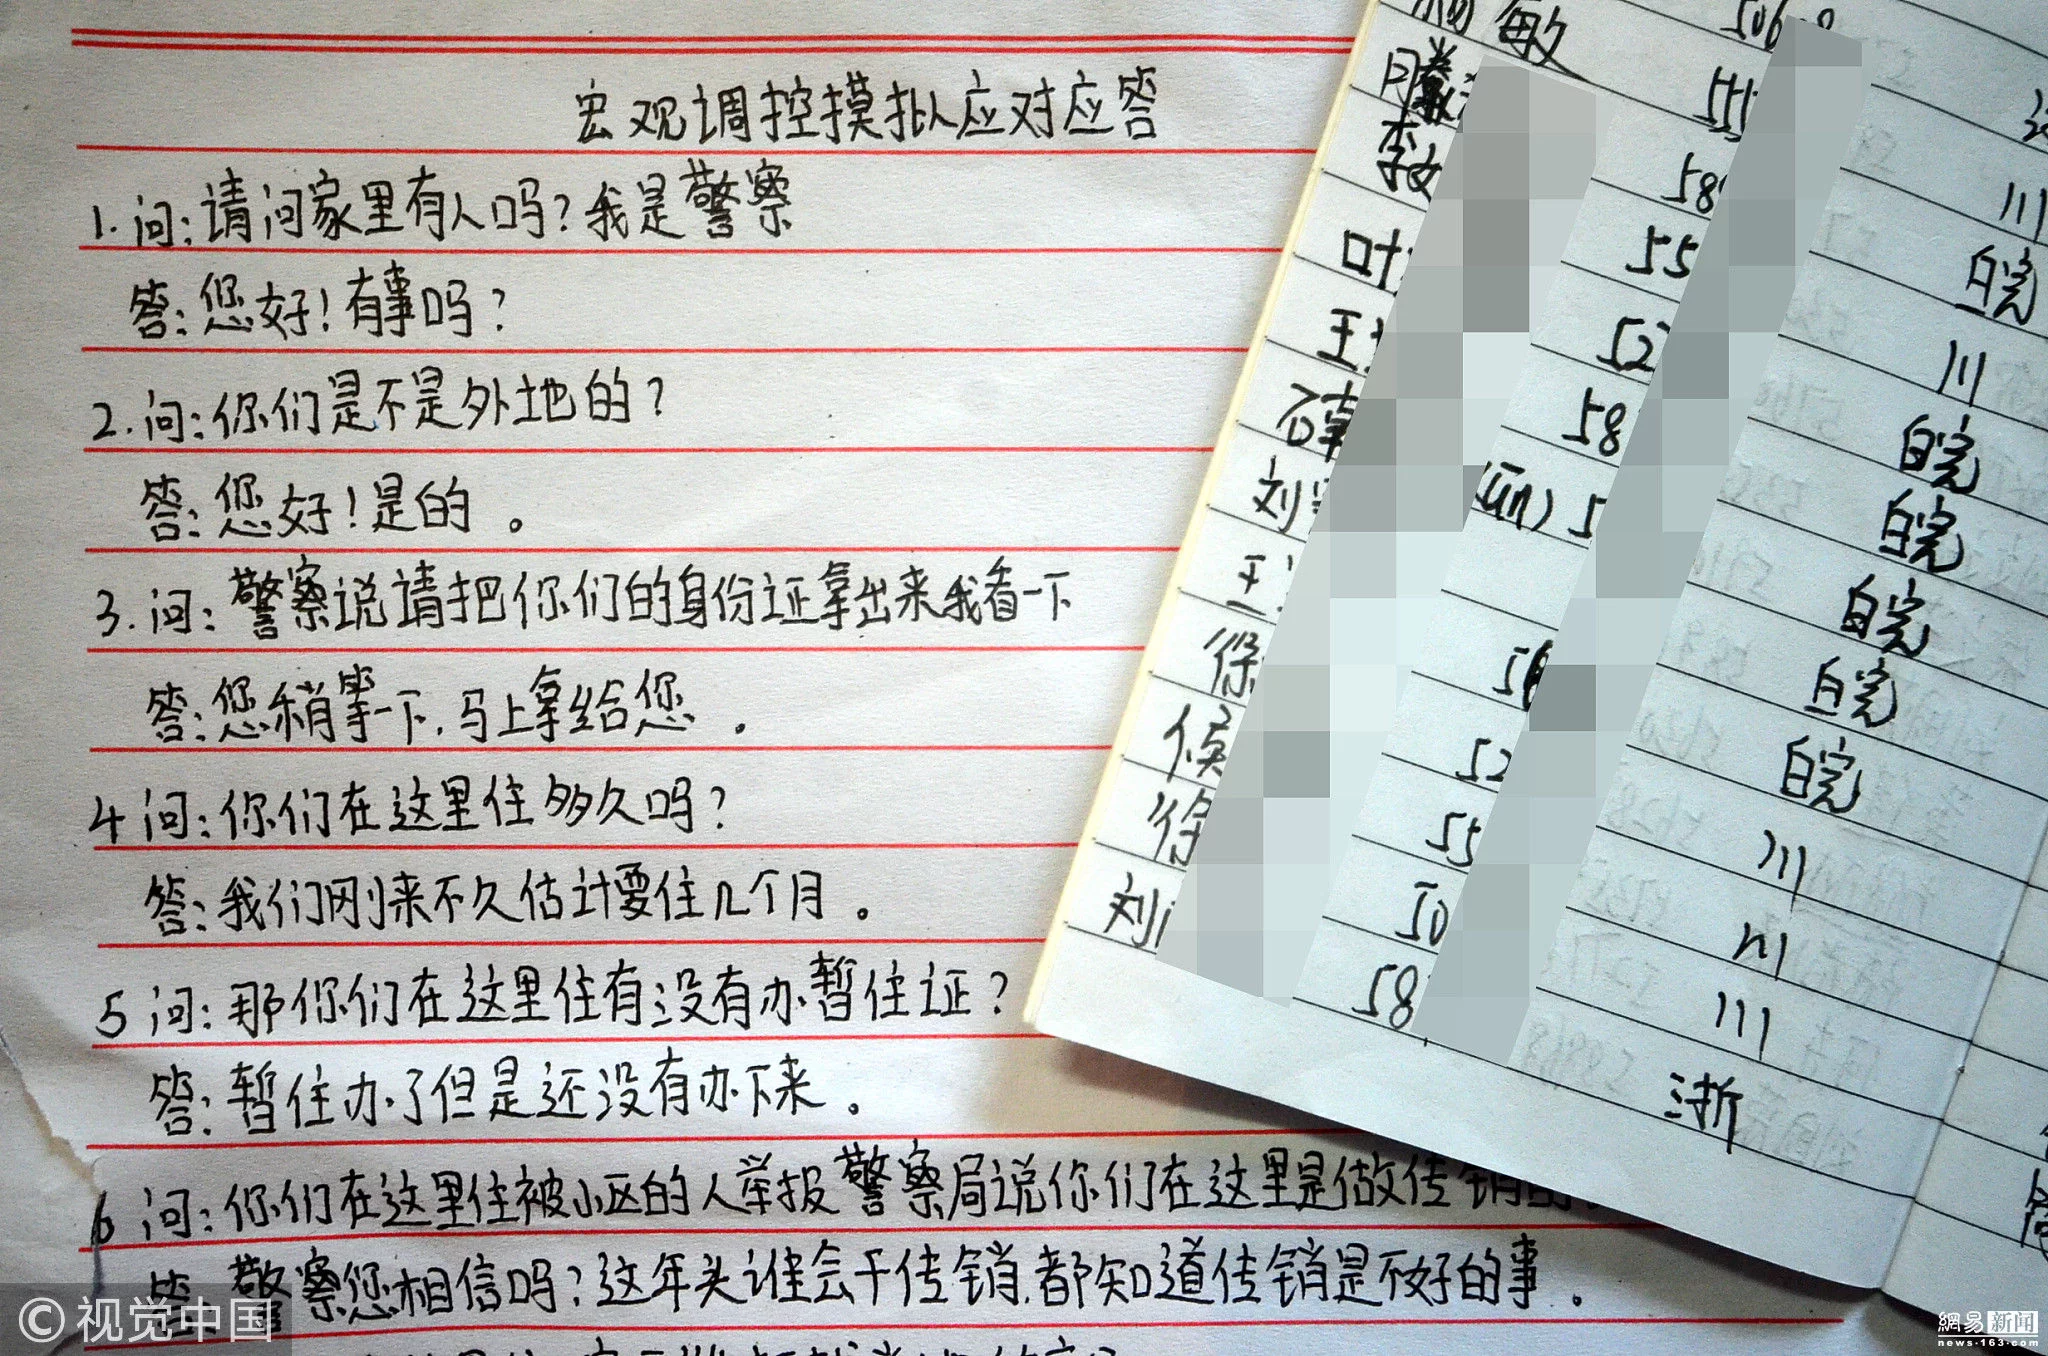 宏观调控摸拟应对应答
1.问:请问家里有人吗?我是警察
答:您好!有事吗?
2.问:你们是不是外地的?
答:您好!是的。
3.问:警察说请把你们的身份证拿出来我看一下
答:您稍等一下,马上拿给您。
4问:你们在这里住多久吗?
答:我们刚来不久估计要住几个月。
5问:那你们在这里住有没有办暂住证?
答:暂住办了但是还没有办下来。
6问:你们在这里住被小区的人举报警察局说你们在这里是做传销的
答:警察您相信吗?这年头谁会干传销,都知道传销是不好的事。
敏 506
李文 58 川
叶 55 皖
王 52 川
石 58 皖
刘 (lin) 5 皖
王 皖
徐 5 皖
候 52 皖
徐 55 川
刘 50 川
58 川
浙
©视觉中国
網易新闻
news·163·com